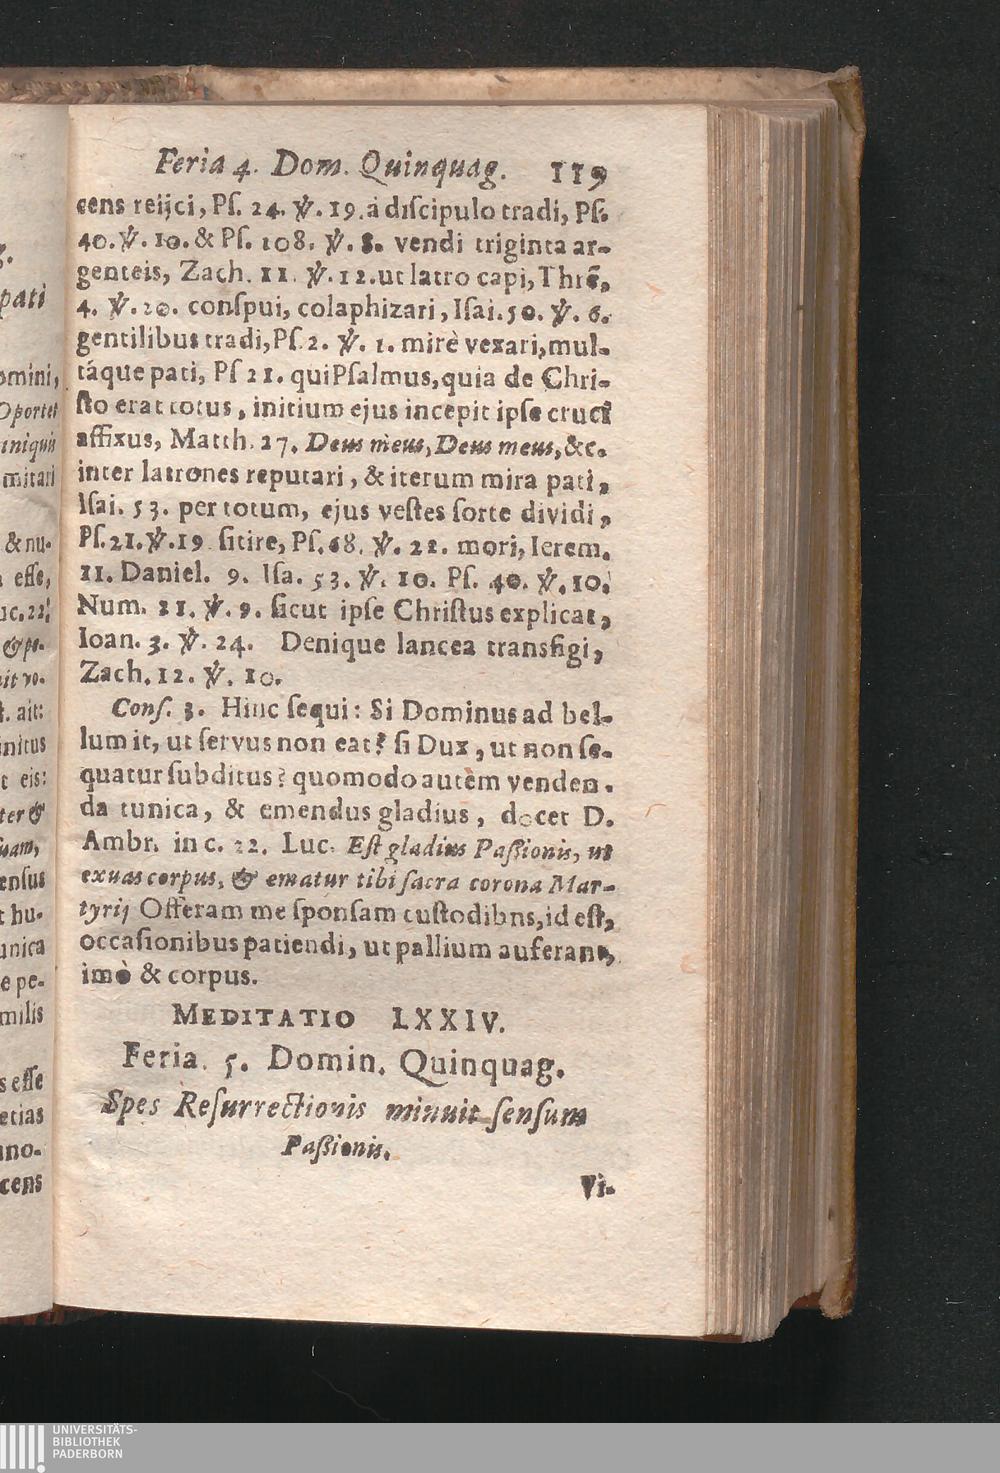 Feria 4. Dom. Quinquag. 119
cens reijci, Pſ. 24. ℣. 19. à diſcipulo tradi, Pſ.
40. ℣. 10. & Pſ. 108. ℣. 8. vendi triginta ar-
genteis, Zach. 11. ℣. 12. ut latro capi, Thrē,
4. ℣. 20. conſpui, colaphizari, Iſai. 50. ℣. 6.
gentilibus tradi, Pſ 2. ℣. 1. mirè vexari, mul-
táque pati, Pſ 21. qui Pſalmus, quia de Chri-
ſto erat totus, initium ejus incepit ipſe cruci
affixus, Matth. 27. Deus meus, Deus meus, &c.
inter latrones reputari, & iterum mira pati,
Iſai. 53. per totum, ejus veſtes ſorte dividi,
Pſ. 21. ℣. 19 ſitire, Pſ. 68. ℣. 22. mori, Ierem.
11. Daniel. 9. Iſa. 53. ℣. 10. Pſ. 40. ℣. 10.
Num. 21. ℣. 9. ſicut ipſe Chriſtus explicat,
Ioan. 3. ℣. 24. Denique lancea transfigi,
Zach. 12. ℣. 10.
Conſ. 3. Hinc ſequi: Si Dominus ad bel-
lum it, ut ſervus non eat? ſi Dux, ut non ſe-
quatur ſubditus? quomodo autèm venden-
da tunica, & emendus gladius, docet D.
Ambr. in c. 22. Luc. Eſt gladius Paſſionis, ut
exuas corpus, & ematur tibi ſacra corona Mar-
tyrij Offeram me ſponſam cuſtodibns, id eſt,
occaſionibus patiendi, ut pallium auferant,
imò & corpus.
MEDITATIO LXXIV.
Feria. 5. Domin. Quinquag.
Spes Reſurrectionis minuit ſenſum
Paſſionis.
Vi-
pati
omini,
Oportet
iniquis
mitari
& nu-
eſſe,
uc. 22.
& pe-
it vo-
t. ait:
initus
t eis:
ter &
uam,
enſus
t hu-
unica
e pe-
milis
s eſſe
etias
nno-
cens
UNIVERSITÄTS-
BIBLIOTHEK
PADERBORN